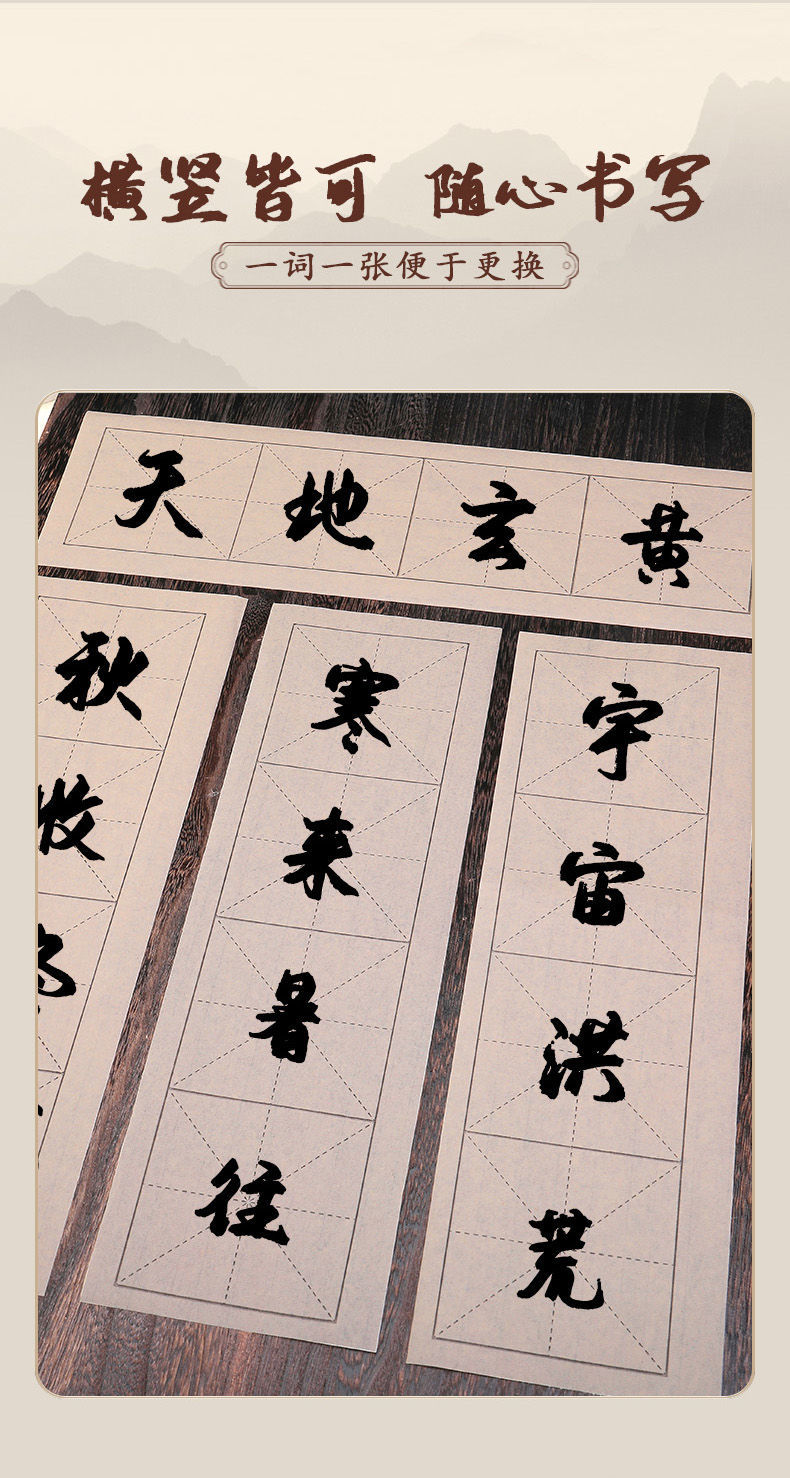 横竖皆可 随心书写
一词一张便于更换
天地玄黄
宇宙洪荒
寒来暑往
秋收